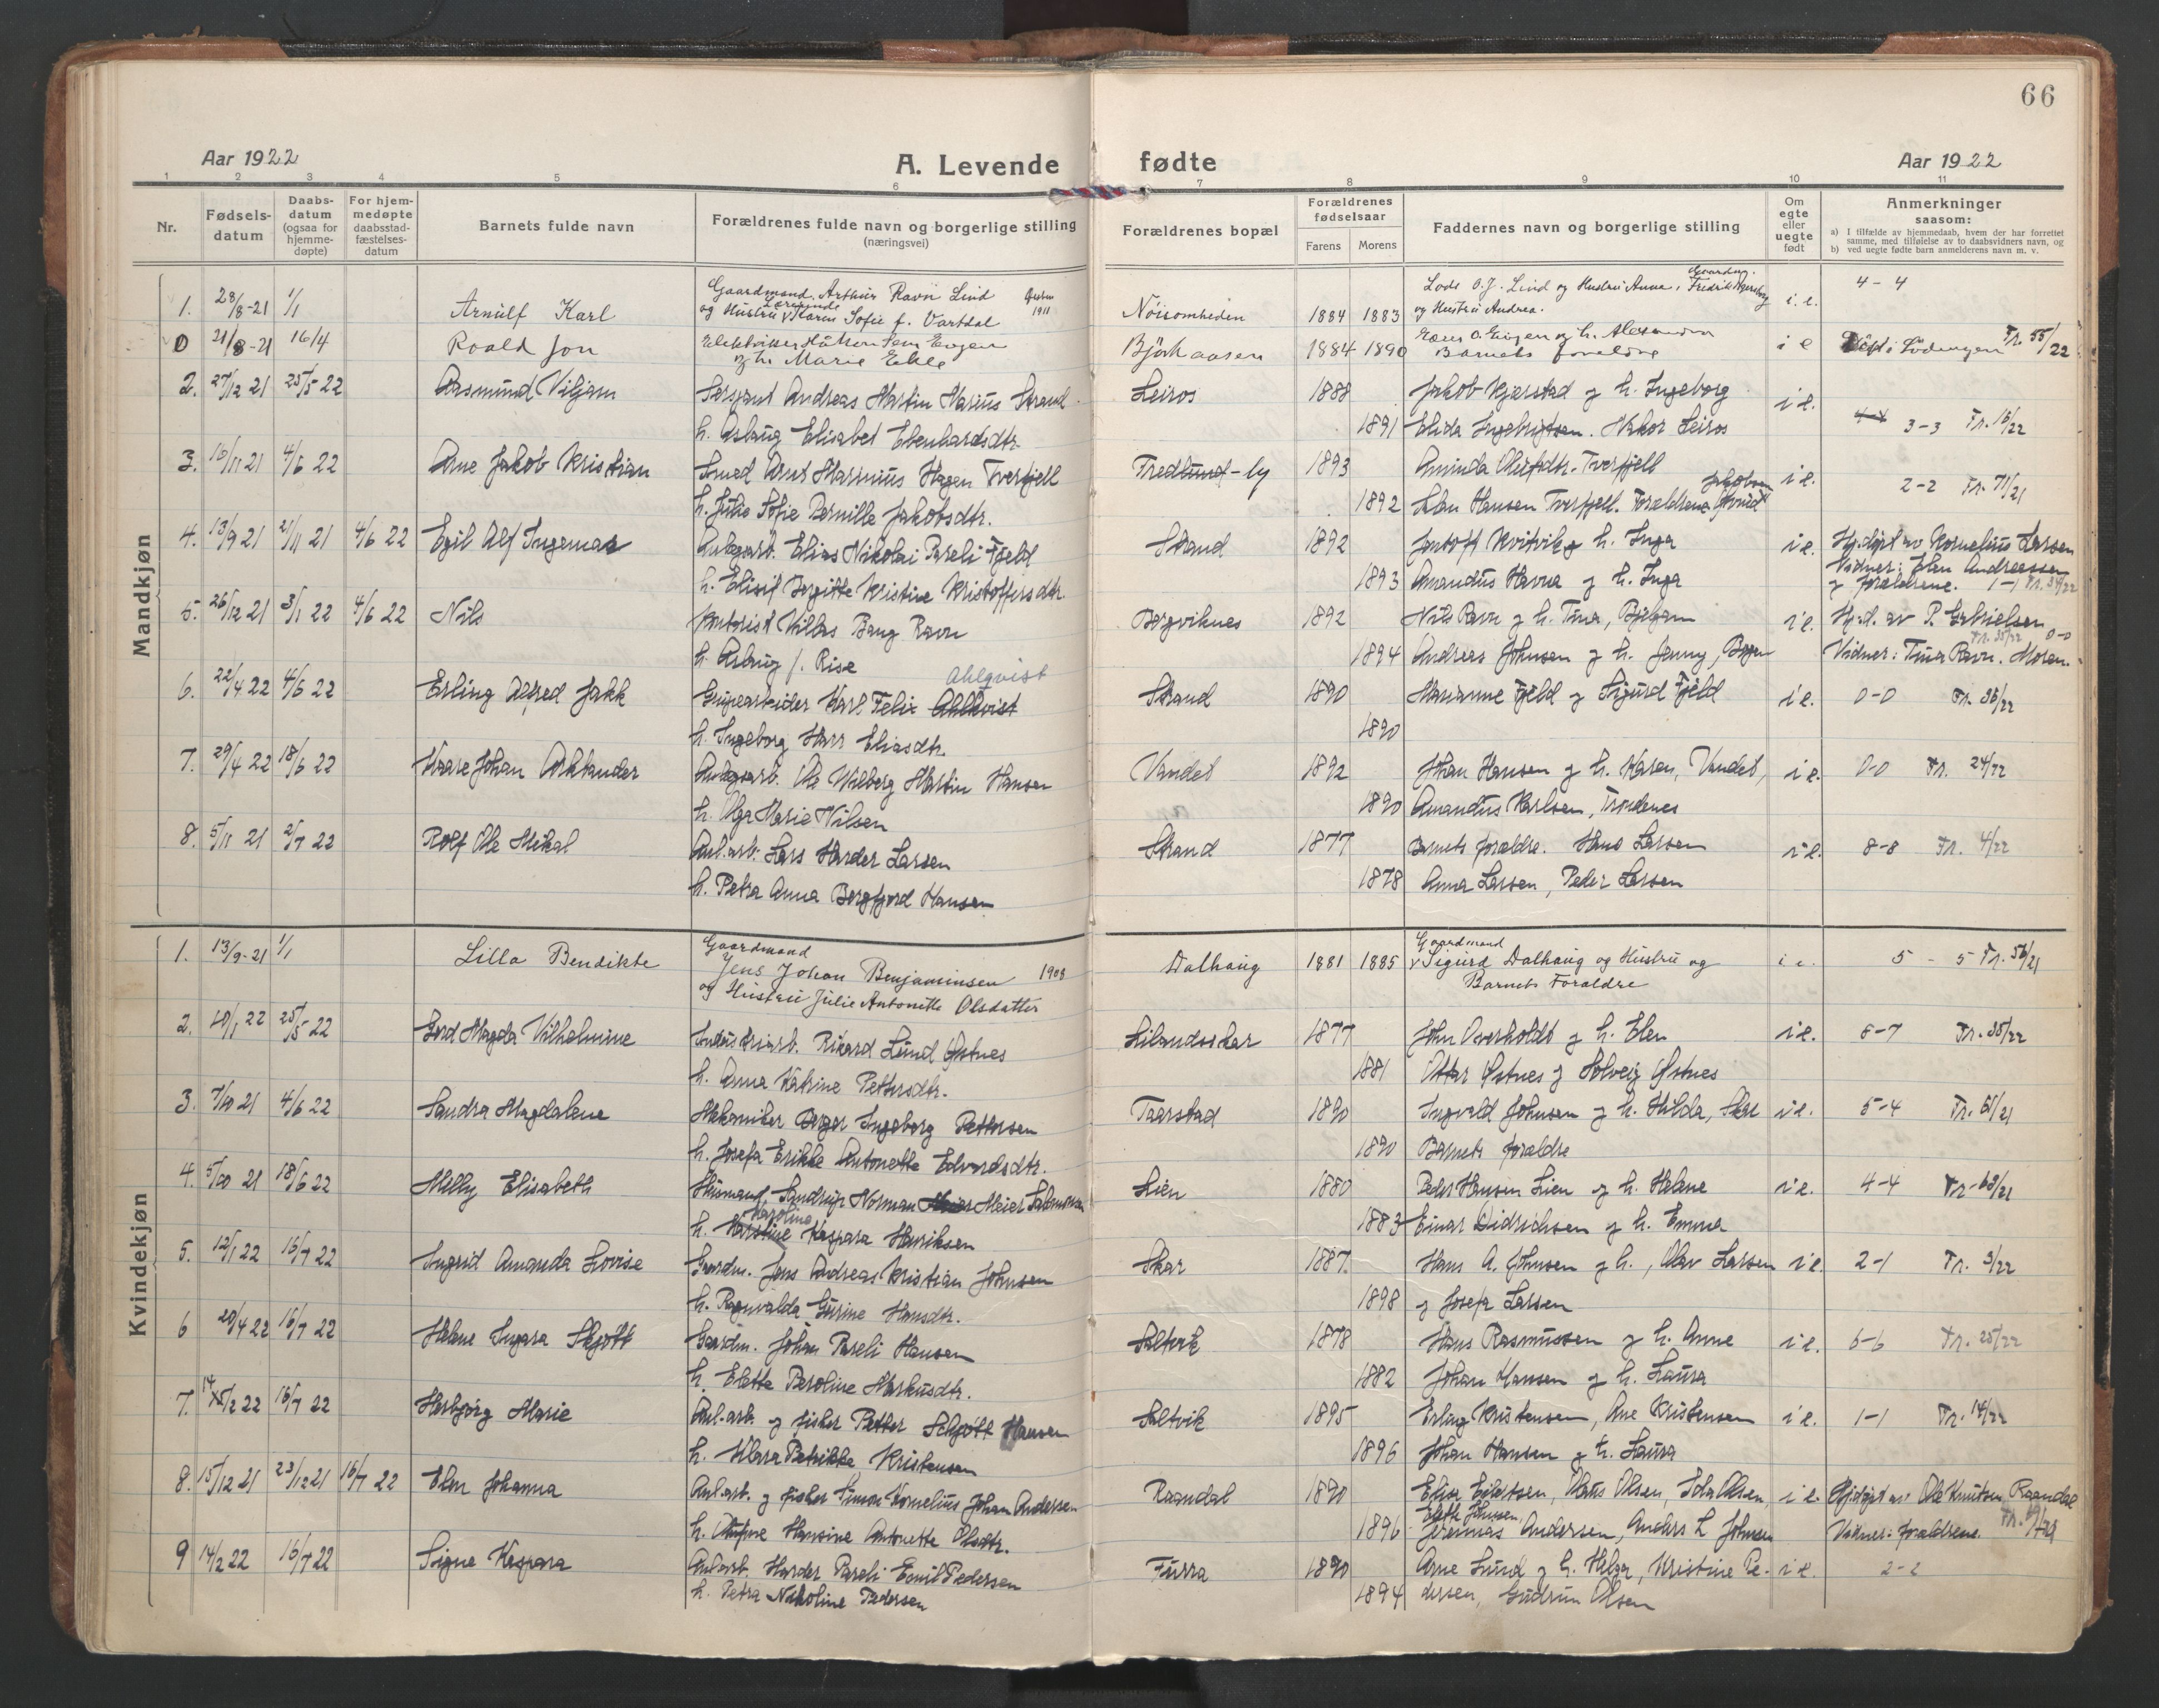 66
Aar 1922
A. Levende
fødte
Aar 1922
1 2 3 4 5 6 7 8 9 10 11
Nr.
Fødsels-
datum
Daabs-
datum
(ogsaa for
hjemme-
døpte)
For hjem-
medøpte
daabsstad-
fæstelses-
datum
Barnets fulde navn
Forældrenes fulde navn og borgerlige stilling
(næringsvei)
Forældrenes bopæl
Forældrenes
fødselsaar
Farens
Morens
Faddernes navn og borgerlige stilling
Om
egte
eller
uegte
født
Anmerkninger
saasom:
a) I tilfælde av hjemmedaab, hvem der har forrettet
samme, med tilføielse av to daabsvidners navn, og
b) ved uegte fødte barn anmelderens navn m. v.
Mandkjøn
1. 28/8-21 1/1 Arnulf Karl Gaardmand Arthur Ravn Lind
og Hustru Karen Sofie f. Vartdal 1911 Nöisomheden 1884 1883 Lods O.J. Lind og Hustru Anna, Fredrik
og Hustru Andrea. i.e. 4-4
0 21/8-21 16/4 Roald Jon
og h. Marie Björkaasen 1884 1890 og h. Alexandra
Barnets foreldre i e Tr. 55/22
2. 27/12 21 25/5 22 Aasmund Viljam Sersjant Andreas Martin Marius Strand Leiros 1888 Jakob Kjærstad g h. Ingeborg i e.
h. Aslaug Elisabet Ebenhardsdtr. 1891 Elida Ingebrigtsen. Leiros 3-3 Tr. 15/22
3. 16/11 21 4/6 22 Arne Jakob Kristian Smed Arnt Hagen Tverfjell Fredlund-by 1893 Tverfjell i e.
h. Julie Sofie Pernille Jakobsdtr. 1892 Hansen Tverfjell. Forældrene 2-2 Tr. 71/21
4. 13/9 21 21/11 21 4/6 22 Egil Alf Ingemar Anlegsarb. Elias Nikolai Pareli Fjeld Strand 1892 Kvitvik g h. Inga i e. Hj.døpt av Kornelius Larsen
h. Elisif Birgitte Kristine Kristoffersdtr. 1893 Amandus Havna g h. Inga Vidner: Elen Andreassen
g forældrene. 1-1
5. 26/12 21 3/1 22 4/6 22 Nils Kontorist Villas Bang Ravn Bergviknes 1892 Nils Ravn g h. Tina, i e. Hj.d. av P. Gabrielsen 0-0
h. Aslaug f. Rise 1894 Andreas Johnsen g h. Jenny, Bogen Vidner: Tina Ravn. Moren.
Ahlqvist
6. 22/4 22 4/6 22 Erling Alfred Jakk Grubearbeider Karl Felix Ahlkvist Strand 1890 Marianne Fjeld g Sigurd Fjeld i e. 0-0 Tr. 36/22
h. Ingeborg Eliasdtr. 1890
7. 29/4 22 18/6 22 Kaare Johan Arktander Anlegsarb. Ole Vilberg Martin Hansen Vandet 1892 Johan Hansen g h. Karen, Vandet, i e. 0-0 Tr. 24/22
h. Olga Marie Nilsen 1890 Amandus Karlsen, Trondenes
8. 5/11 21 2/7 22 Rolf Ole Mikal Anl.arb. Lars Harder Larsen Strand 1877 Barnets forældre. Hans Larsen i e. 8-8 Tr. 4/22
h. Petra Anna Bergfjord Hansen 1878 Anna Larsen, Peder Larsen
Kvindekjøn
1. 13/9-21 1/1 Lilla Bendikte Gaardmand
Jens Johan Benjaminsen 1908
og Hustru Julie Antonette Olsdatter Dalhaug 1881 1885 Gaardmand
Sigurd Dalhaug og Hustru og
Barnets Forældre i e. 5 - 5 Tr. 56/21
2. 10/1 22 25/5 22 Magda Vilhelmine Industriarb. Rikard Lund Østnes Lilandsskar 1877 John Overholdt g h. Elen i e. 8-7 Tr. 35/22
h. Anna Katrine Pettersdtr. 1881 Ottar Østnes g Solveig Østnes
3. 7/10 21 4/6 22 Sandra Magdalene Mekaniker Birger Ingeberg Pettersen Taarstad 1890 Ingvald Johnsen g h. Hilda, Skar i e. 5-4 Tr. 61/21
h. Josefa Erikke Antonette Edvardsdtr. 1890 Barnets forældre
4. 5/10 21 18/6 22 Milly Elisabeth Husmand Sandrup Norman Meier Salomonsen Lien 1880 Peder Hansen Lien g h. Helene i e. 4-4 Tr. 63/21
Karoline
h. Kaspara Henriksen 1883 Einar Didrichsen g h. Emma
5. 12/1 22 16/7 22 Ingrid Amanda Lovise Gaardm. Jens Andreas Kristian Johnsen Skar 1887 Hans A. Johnsen g h., Olav Larsen i e. 2-1 Tr. 3/22
h. Ragnvalda Gurine Hansdtr. 1898 g Josefa Larsen
6 20/4 22 16/7 22 Helene Ingara Skjött Gaardm. Johan Pareli Hansen Saltvik 1878 Hans Rasmussen g h. Anne i e. 6-6 Tr. 25/22
h. Elette Peroline Markusdtr. 1882 Johan Hansen g h. Laura
7. 14/2 22 16/7 22 Herbjørg Marie Anl.arb. g fisker Petter Schjött Hansen Saltvik 1895 Erling Kristensen, Ane Kristensen i e. 1-1 Tr. 14/22
h. Klara Petrikke Kristensen 1896 Johan Hansen g h. Laura
8. 15/12 21 23/12 21 16/7 22 Elen Johanna Anl.arb. g fisker Simon Kornelius Johan Andersen Raandal 1890 Elise Eilertsen, Olaus Olsen, i e. Hj.døpt av Ole Knutsen Raandal
h. Hansine Antonette Olsdtr. 1896 Jeremias Andersen, Anders L Johnsen Vidner: forældrene.
9 14/2 22 16/7 22 Signe Kaspara Anl.arb. Harder Pareli Emil Pedersen Furra 1890 Arne Lund g h. Helga, Kristine Pe- i e. 2-2
h. Petra Nikoline Pedersen 1894 dersen, Gudrun Olsen